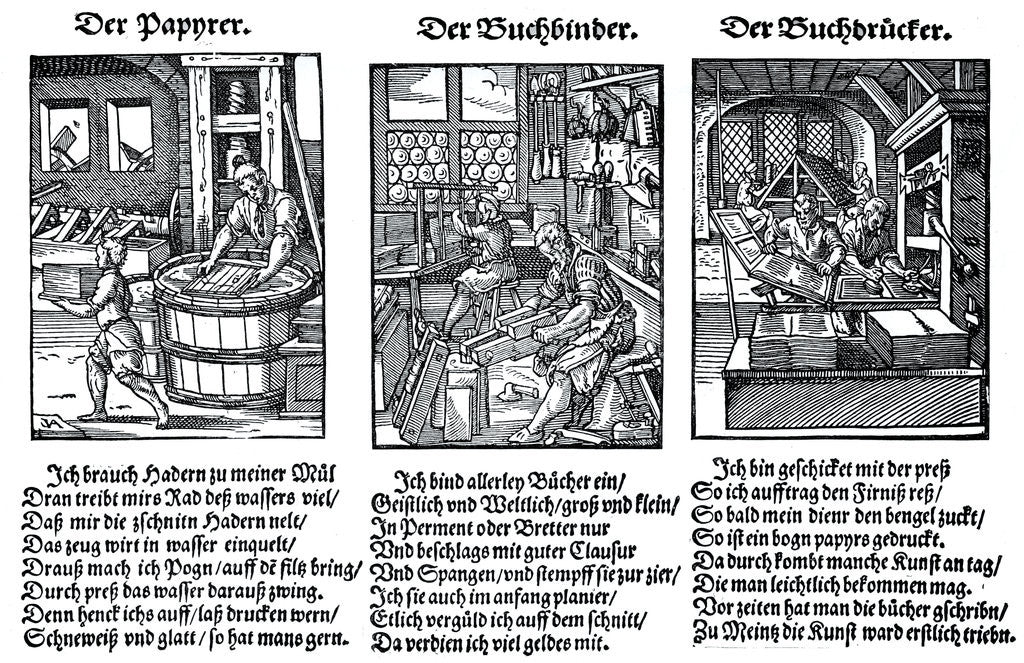 Der Papyrer.
Jch brauch Hadern zu meiner Mül
Dran treibt mirs Rad deß wassers viel/
Daß mir die zschnitn Hadern nelt/
Das zeug wirt in wasser einquelt/
Drauß mach ich Pogn/auff dē filtz bring/
Durch preß das wasser darauß zwing.
Denn henck ichs auff/laß drucken wern/
Schneweiß vnd glatt/so hat mans gern.
Der Buchbinder.
Jch bind allerley Bücher ein/
Geistlich vnd Weltlich/groß vnd klein/
Jn Perment oder Bretter nur
Vnd beschlags mit guter Clausur
Vnd Spangen/vnd stempff sie zur zier/
Jch sie auch im anfang planier/
Etlich vergüld ich auff dem schnitt/
Da verdien ich viel geldes mit.
Der Buchdrücker.
Jch bin geschicket mit der preß
So ich aufftrag den Firniß reß/
So bald mein dienr den bengel zuckt/
So ist ein bogn papyrs gedruckt.
Da durch kombt manche Kunst an tag/
Die man leichtlich bekommen mag.
Vor zeiten hat man die bücher gschribn/
Zu Meintz die Kunst ward erstlich triebn.